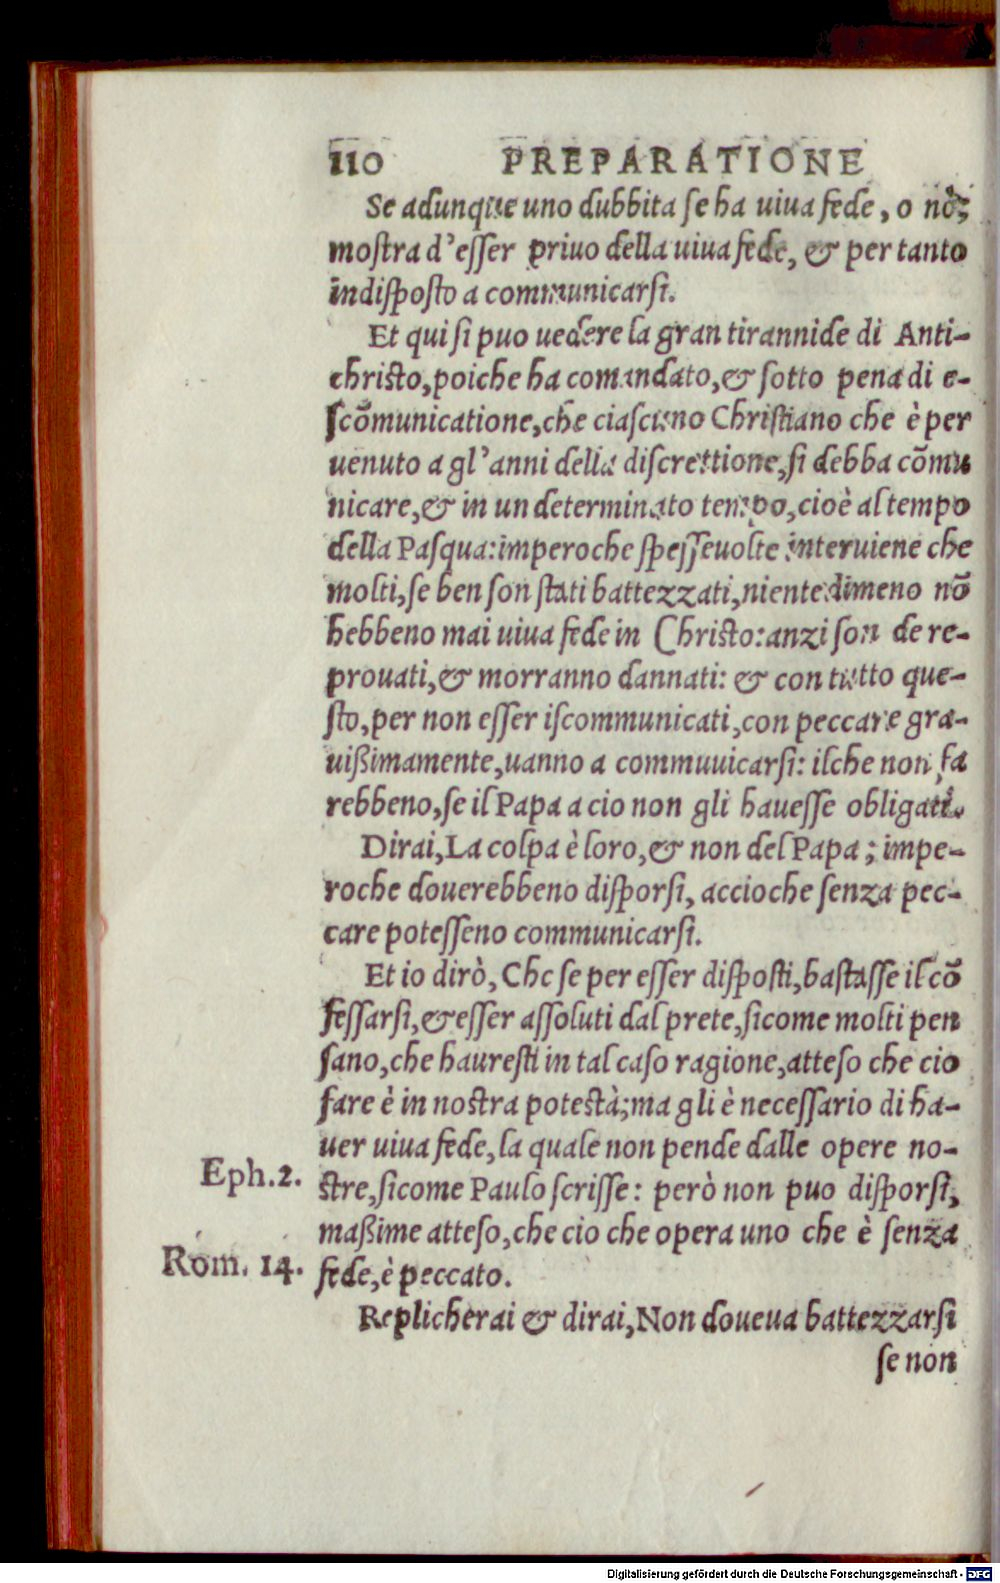 110 PREPARATIONE
Se adunque uno dubbita ſe ha uiua fede, o nò;
moſtra d'eſſer priuo della uiua fede, & per tanto
indiſpoſto a communicarſi.
Et qui ſi puo uedere la gran tirannide di Anti-
chriſto, poiche ha comandato, & ſotto pena di e-
ſcōmunicatione, che ciaſcuno Chriſtiano che è per
uenuto a gl'anni della diſcrettione, ſi debba cōmu
nicare, & in un determinato tempo, cioè al tempo
della Paſqua: imperoche ſpeſſeuolte interuiene che
molti, ſe ben ſon ſtati battezzati, nientedimeno nō
hebbeno mai uiua fede in Chriſto: anzi ſon de re-
prouati, & morranno dannati: & con tutto que-
ſto, per non eſſer iſcommunicati, con peccare gra-
uißimamente, uanno a commuuicarſi: ilche non fa
rebbeno, ſe il Papa a cio non gli haueſſe obligati.
Dirai, La colpa è loro, & non del Papa; impe-
roche douerebbeno diſporſi, accioche ſenza pec-
care poteſſeno communicarſi.
Et io dirò, Che ſe per eſſer diſpoſti, baſtaſſe il cō
feſſarſi, & eſſer aſſoluti dal prete, ſicome molti pen
ſano, che haureſti in tal caſo ragione, atteſo che cio
fare è in noſtra poteſtà; ma gli è neceſſario di ha-
uer uiua fede, la quale non pende dalle opere no-
Eph. 2.
ſtre, ſicome Paulo ſcriſſe: però non puo diſporſi,
maßime atteſo, che cio che opera uno che è ſenza
Rom. 14.
fede, è peccato.
Replicherai & dirai, Non doueua battezzarſi
ſe non
Digitalisierung gefördert durch die Deutsche Forschungsgemeinschaft - DFG